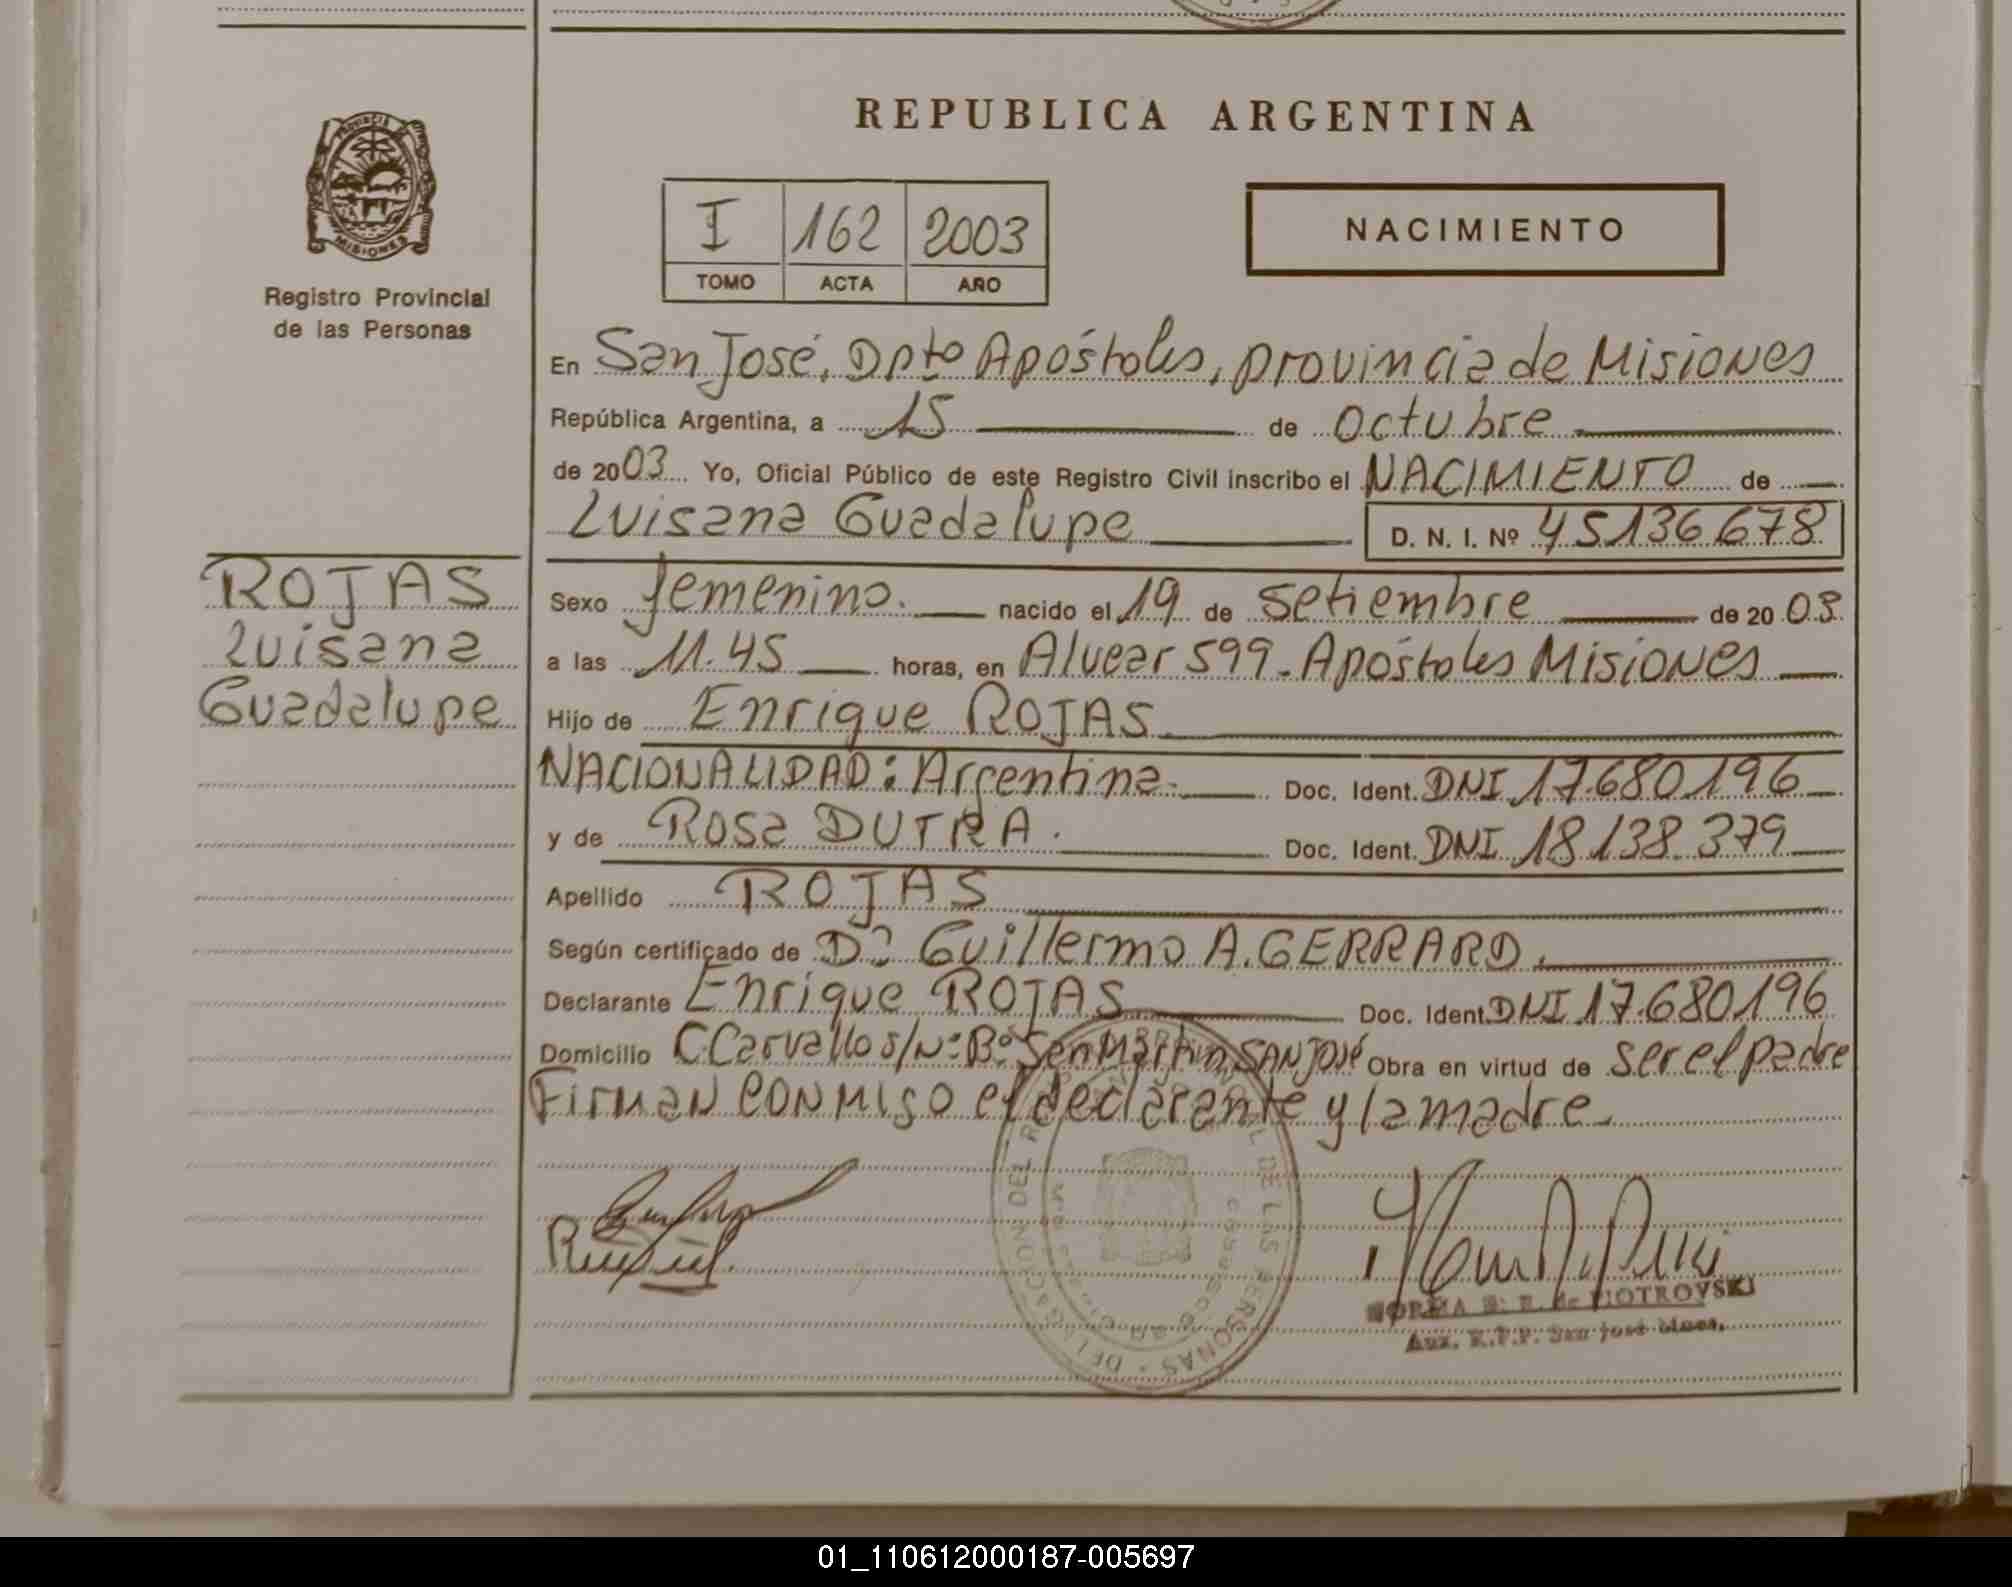 REPUBLICA ARGENTINA
PROVINCIA DE
MISIONES
Registro Provincial
de las Personas
I 162 2003
TOMO ACTA AÑO
NACIMIENTO
En San José, Dpto Apóstoles, provincia de Misiones
República Argentina, a 15 de Octubre
de 2003 Yo, Oficial Público de este Registro Civil inscribo el NACIMIENTO de
Luisana Guadalupe D. N. I. Nº 45136678
ROJAS
Luisana
Guadalupe
Sexo femenino. nacido el 19 de Setiembre de 20 03
a las 11.45 horas, en Alvear 599 - Apóstoles Misiones
Hijo de Enrique ROJAS
NACIONALIDAD: Argentina. Doc. Ident. DNI 17.680.196
y de Rosa DUTRA. Doc. Ident. DNI 18.138.379
Apellido ROJAS
Según certificado de Dº Guillermo A. GERRARD.
Declarante Enrique ROJAS Doc. Ident. DNI 17.680.196
Domicilio C. Carvallo s/Nº Bº San Martin, SAN JOSÉ Obra en virtud de ser el padre
Firman conmigo el declarante y la madre.
DEL REGISTRO PROVINCIAL DE LAS PERSONAS
NORMA B. R. de PIOTROVSKI
Aux. R.P.P. San José Mnes.
01_110612000187-005697